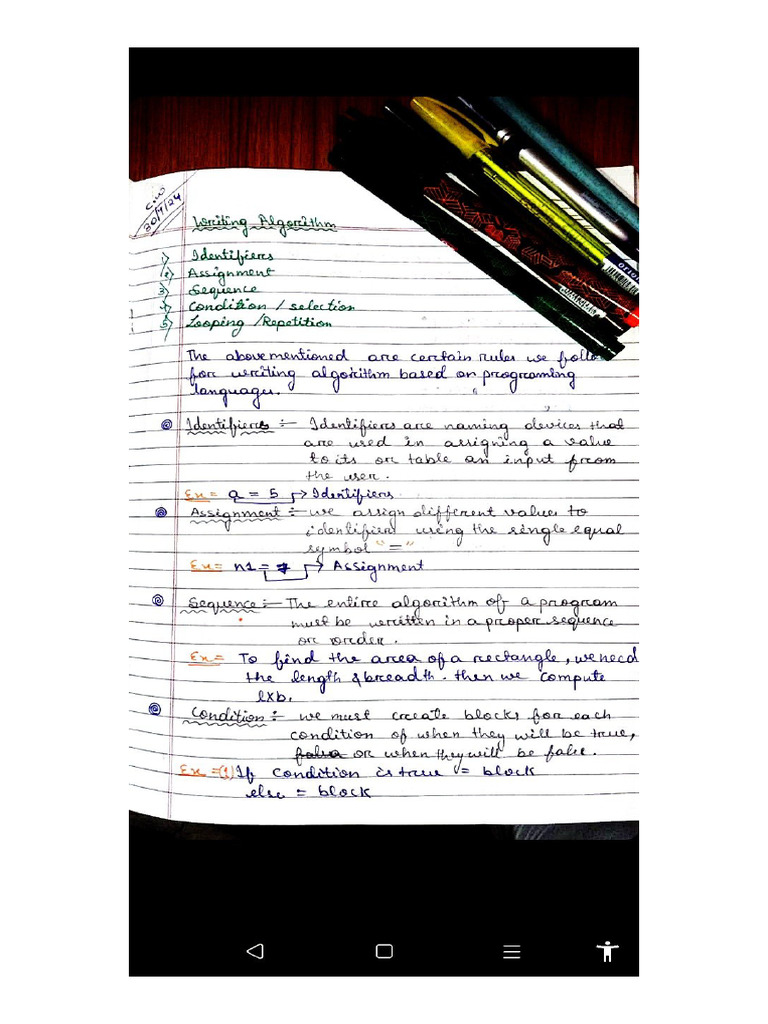 C.W
30/7/24
Writing Algorithm
1) Identifiers
2) Assignment
3) Sequence
4) Condition / selection
5) Looping / Repetition
The abovementioned are certain rules we follo
for writing algorithm based on programing
languages.
Identifiers :- Identifiers are naming devices that
are used in assigning a value
to its or table an input from
the user.
Ex = a = 5 → Identifiers
Assignment :- we assign different values to
identifiers using the single equal
symbol "="
Ex = n1 = 7 → Assignment
Sequence :- The entire algorithm of a program
must be written in a proper sequence
or order.
Ex = To find the area of a rectangle, we need
the length & breadth. then we compute
lxb.
Condition :- we must create blocks for each
condition of when they will be true,
or when they will be false.
Ex = (1) If condition is true = block
else = block